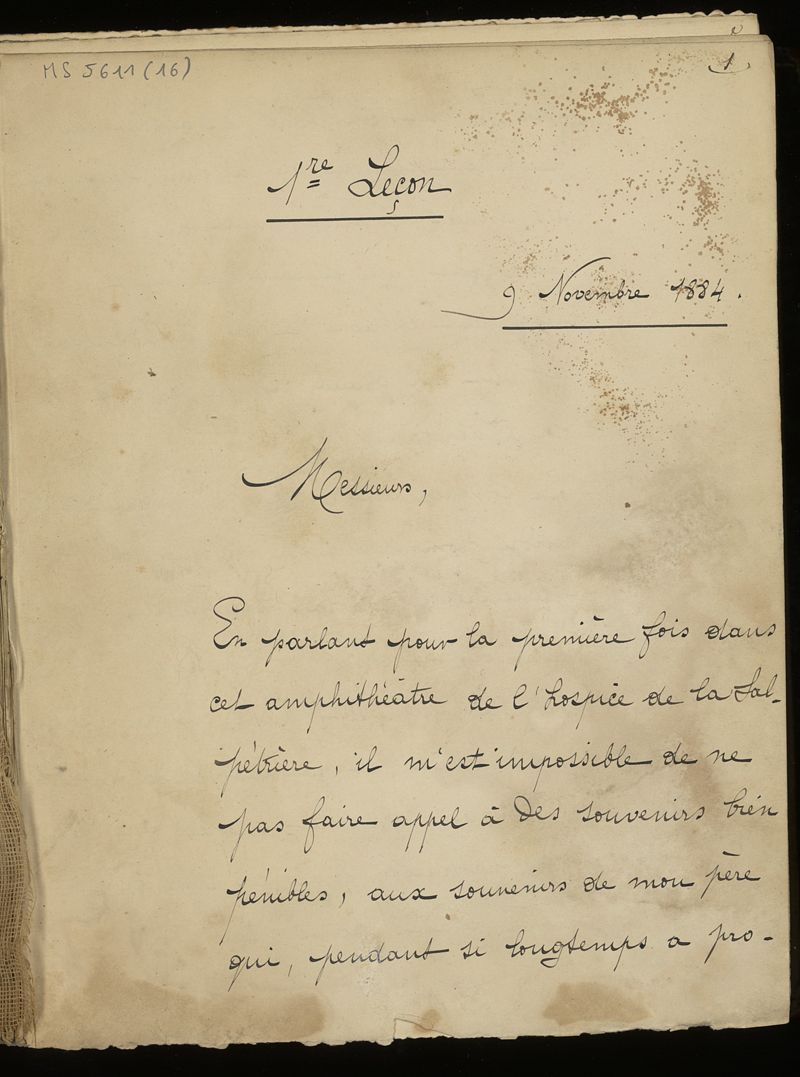 MS 5611 (16)
1.
1re Leçon
9 Novembre 1884.
Messieurs,
En parlant pour la première fois dans
cet amphithéâtre de l'hospice de la Sal-
pétrière, il m'est impossible de ne
pas faire appel à des souvenirs bien
pénibles, aux souvenirs de mon père
qui, pendant si longtemps a pro-